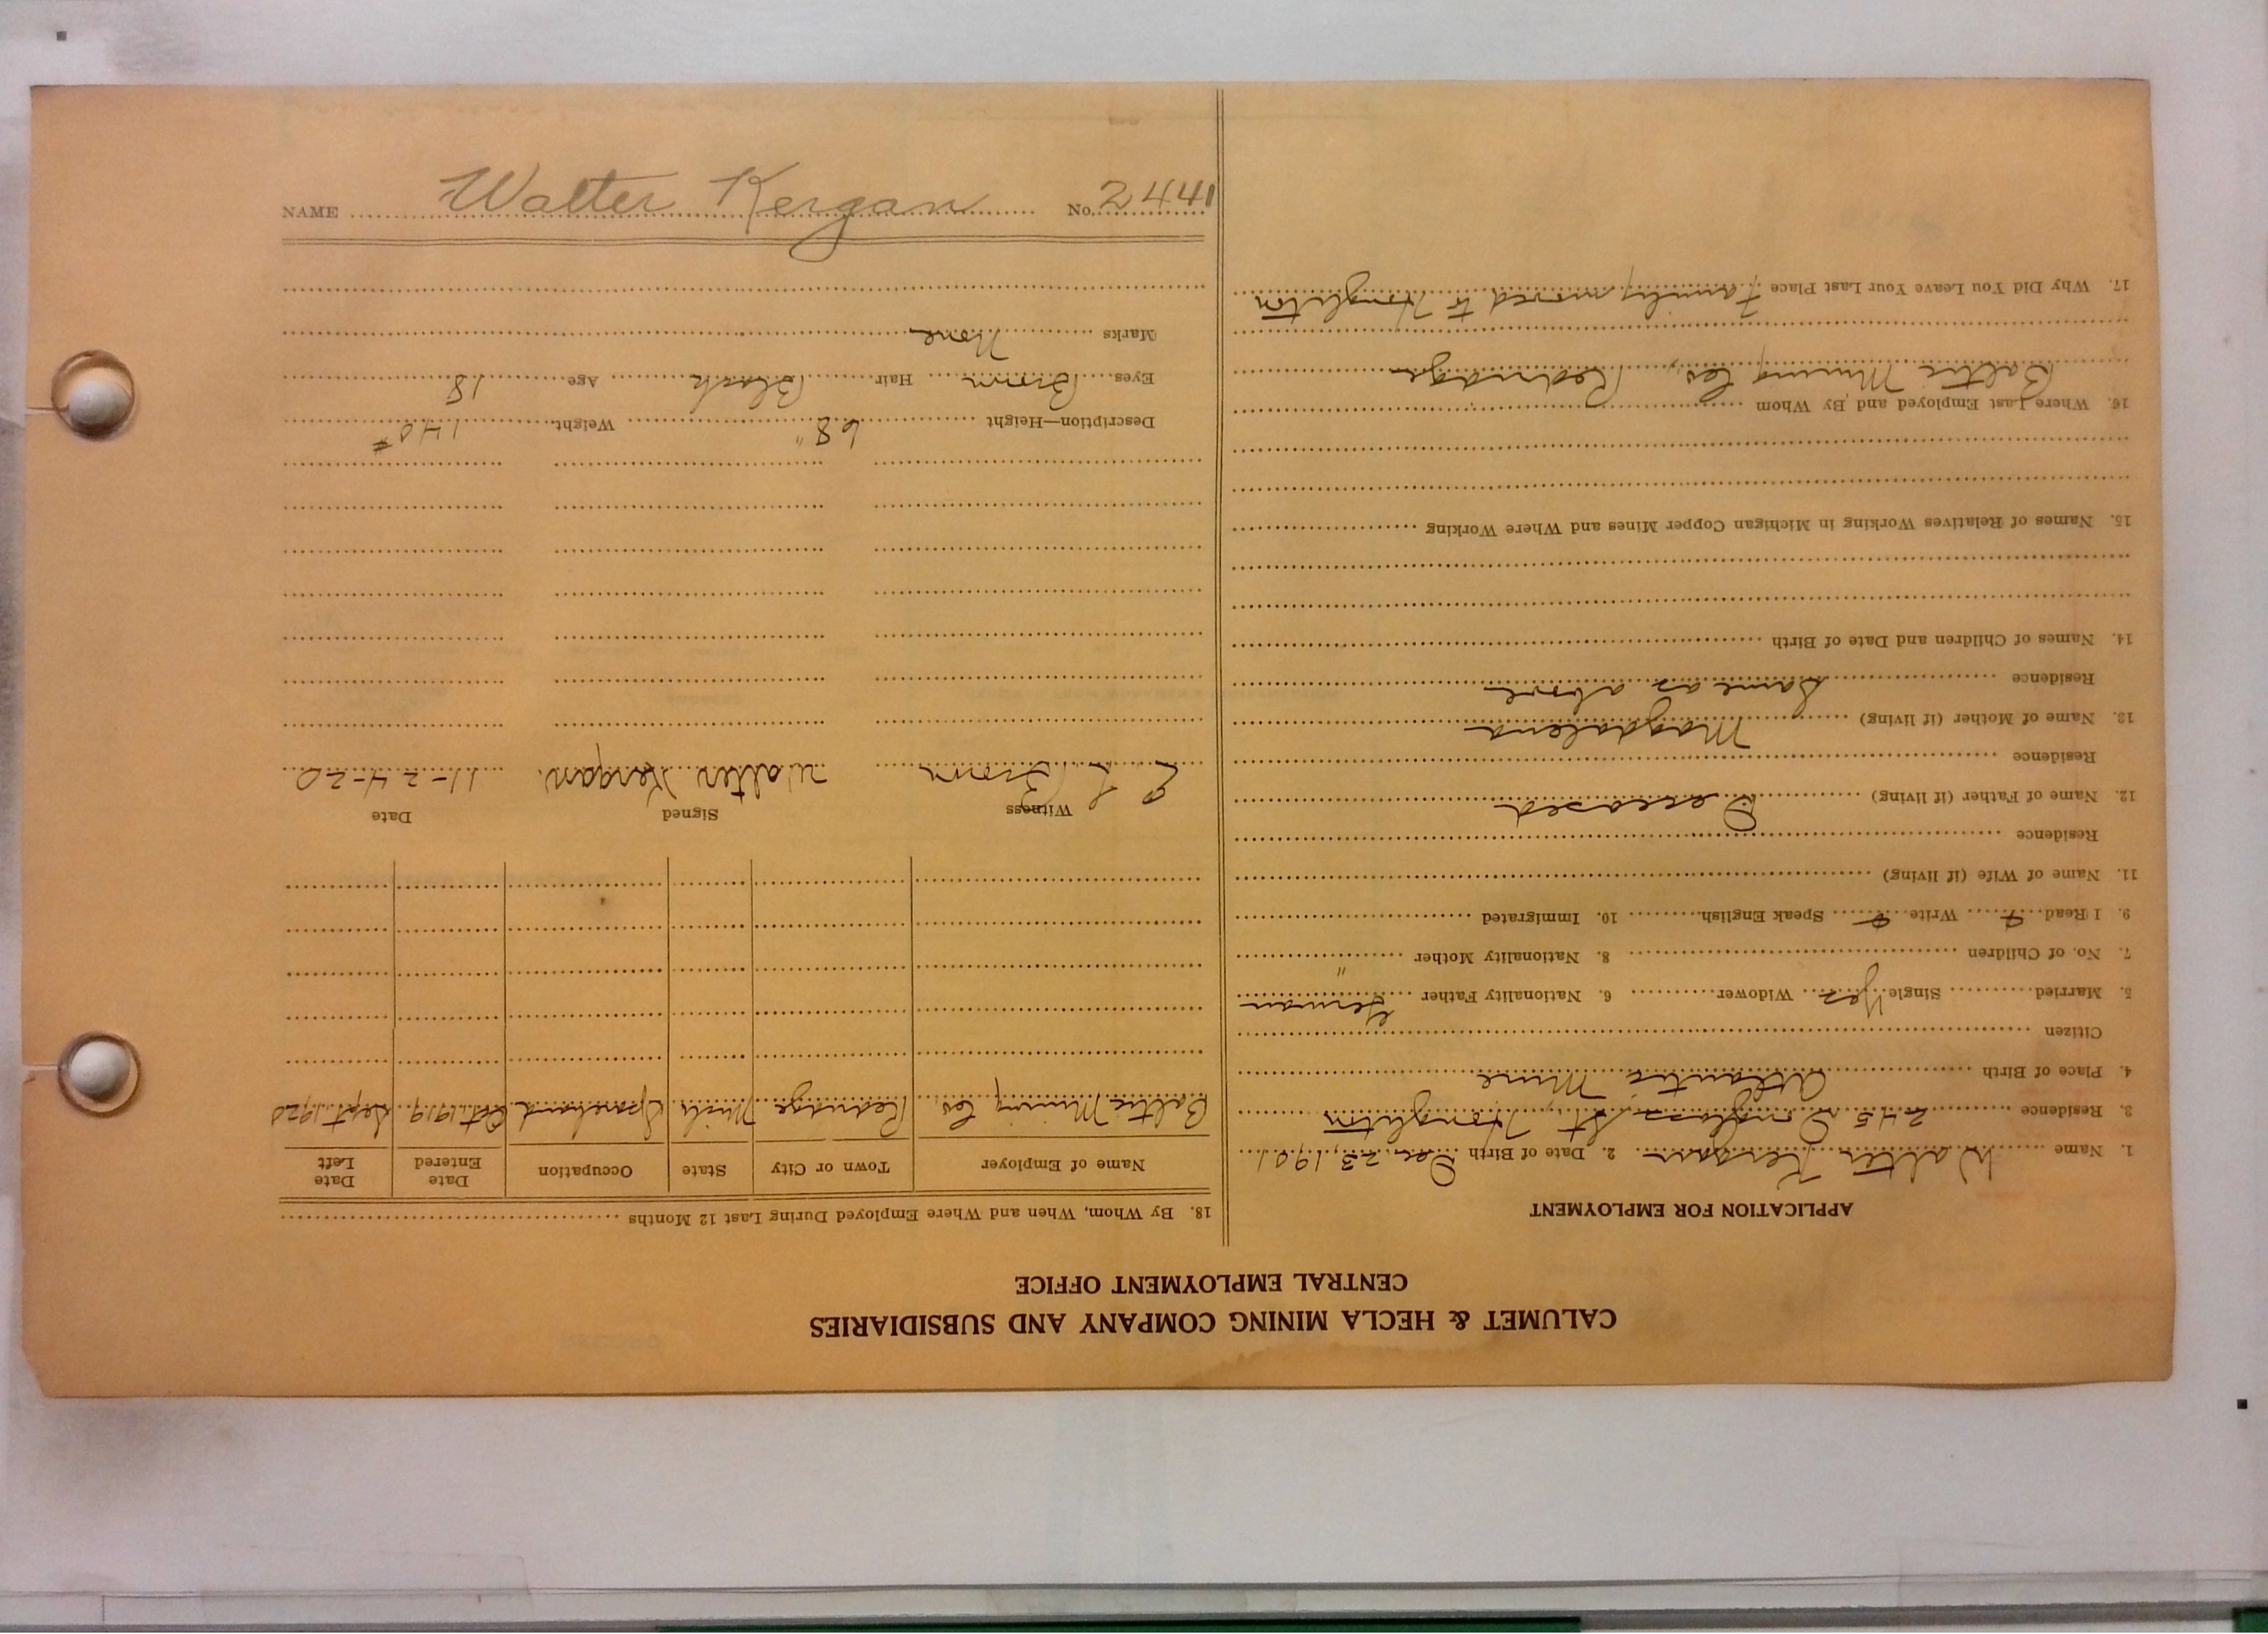 CALUMET & HECLA MINING COMPANY AND SUBSIDIARIES
CENTRAL EMPLOYMENT OFFICE
APPLICATION FOR EMPLOYMENT
1. Name Walter Kergan 2. Date of Birth Dec. 23, 1901
3. Residence 245 Douglass St. Houghton
4. Place of Birth Atlantic Mine
Citizen
5. Married Single Yes Widower 6. Nationality Father German
7. No. of Children 8. Nationality Mother "
9. I Read Write Speak English 10. Immigrated
11. Name of Wife (if living)
Residence
12. Name of Father (if living) Deceased
Residence
13. Name of Mother (if living) Magdalena
Residence Same as above
14. Names of Children and Date of Birth
15. Names of Relatives Working in Michigan Copper Mines and Where Working
16. Where Last Employed and By Whom
Baltic Mining Co., Redridge
17. Why Did You Leave Your Last Place Family moved to Houghton
18. By Whom, When and Where Employed During Last 12 Months
Name of Employer Town or City State Occupation Date Entered Date Left
Baltic Mining Co. Redridge Mich Oct. 1919 Sept. 1920
Witness Signed Date
E L Brown Walter Kergan. 11-24-20
Description—Height 68" Weight 140 #
Eyes Brown Hair Black Age 18
Marks None
NAME Walter Kergan No. 2441